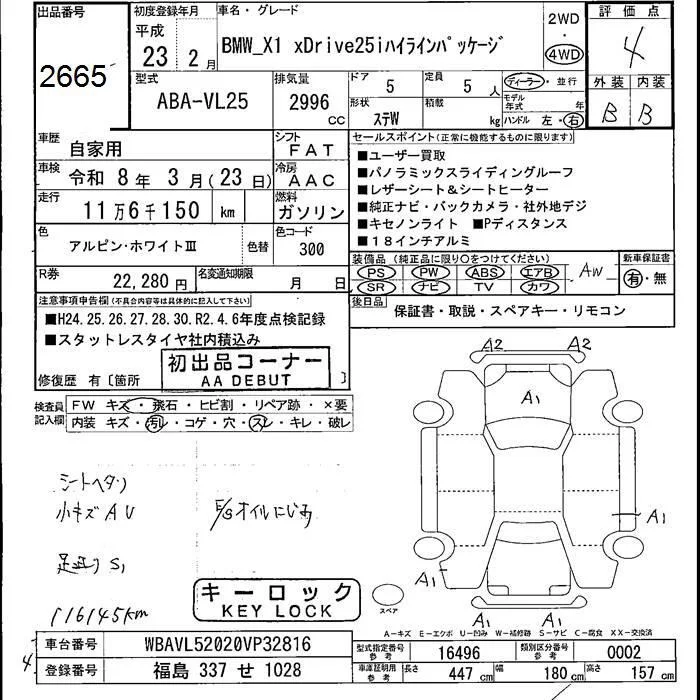 出品番号
2665
初度登録年月
平成
23 年 2 月
車名・グレード
BMW_X1 xDrive25iハイラインパッケージ
2WD
・
4WD
評価点
4
外装 内装
B B
型式
ABA-VL25
排気量
2996 CC
ドア
5
定員
5 人
形状
ステW
積載
kg
ディーラー・並行
モデル年式 年
ハンドル 左・右
車歴
自家用
シフト
FAT
車検
令和 8 年 3 月 (23 日)
冷房
AAC
走行
11 万 6 千 150 km
燃料
ガソリン
色
アルピン・ホワイトⅢ
色替
色コード
300
R券
22,280 円
名変通知期限
月 日
セールスポイント(正常に機能するものに限ります)
■ユーザー買取
■パノラミックスライディングルーフ
■レザーシート&シートヒーター
■純正ナビ・バックカメラ・社外地デジ
■キセノンライト ■Pディスタンス
■18インチアルミ
装備品 (純正品に限り○をつけてください)
PS PW ABS エアB
SR ナビ TV カワ
AW
新車保証書
有・無
後日品
保証書・取説・スペアキー・リモコン
注意事項申告欄(不具合内容等は具体的に記入して下さい)
■H24.25.26.27.28.30.R2.4.6年度点検記録
■スタットレスタイヤ社内積込み
初出品コーナー
AA DEBUT
修復歴 有〔箇所 〕
検査員記入欄
FW キズ・飛石・ヒビ割・リペア跡・×要
内装 キズ・汚れ・コゲ・穴・スレ・キレ・破レ
シートヘタリ
小キズ A U
E/Gオイルにじみ
足廻り S1
116145km
キーロック
KEY LOCK
A2 A2
A1
A1
A1
A1
スペア
A-キズ E-エクボ U-凹み W-補修跡 S-サビ C-腐食 XX-交換済
車台番号
WBAVL52020VP32816
4
登録番号
福島 337 せ 1028
型式指定番号 参考
16496
類別区分番号 参考
0002
車庫証明用 参考
長さ 447 cm
幅 180 cm
高さ 157 cm